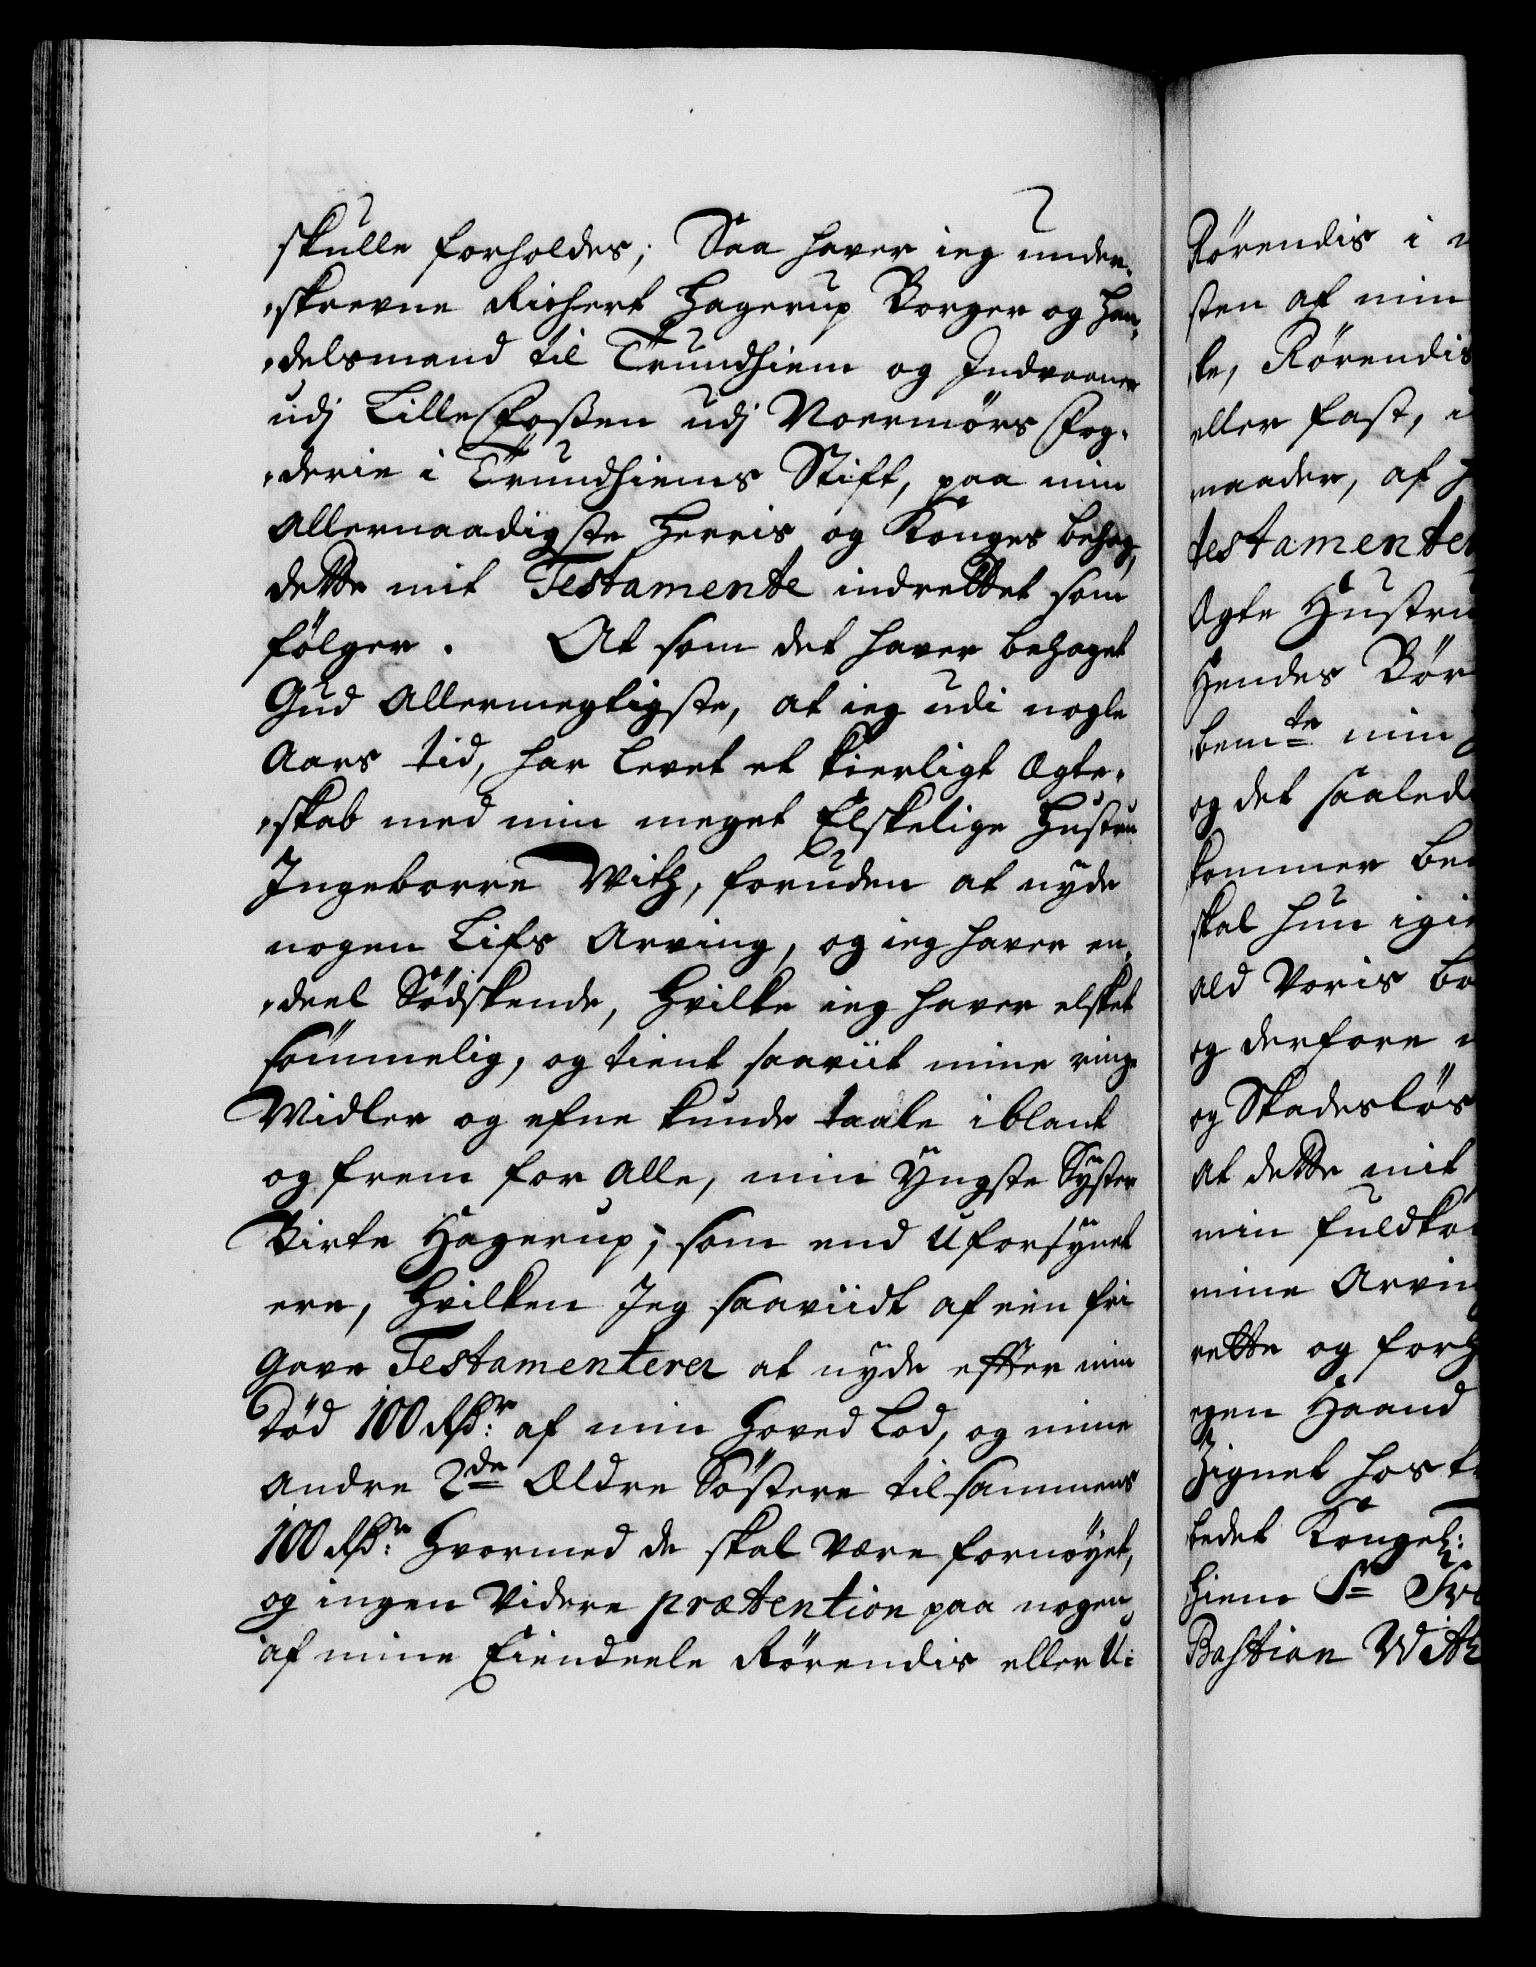 skulle forholdes; Saa hafver ieg under-
skrevne Richert Hagerup Borger og Han-
delsmand til Trundhiem og Indvaaner
udj Lille Foßen udj Noermørs Fog-
derie i Trundhiems Stift, paa min
Allernaadigste Herris og Konges behag,
dette mit Testamente indrettet som
følger. At som det haver behaget
Gud Allermegtigste, at ieg udi nogle
Aars tid, har levet et kierligt Ægte-
skab med min meget Elskelige Hustru
Ingeborre With, foruden at nyde
nogen Lifs Arving, og ieg haver en
deel Södskende, Hvilke ieg haver elsket
sömmelig, og tient saaviit mine ringe
Midler og efne kunde taale iblant
og frem for Alle, min Yngste Syster
Birte Hagerup; som end Uforsynet
ere, Hvilken Jeg saaviidt af een fri
Gave Testamenterer at nyde effter min
Död 100 Rdr: af min Hoved Lod, og mine
Andre 2de Ældre Söstere tilsammens
100 Rdr: Hvormed de skal være fornøyet,
og ingen Videre prætention paa nogen
af mine Eiendeele Rörendis eller U-
Rörendis i
sten af min
ke, Rörendis
eller fast,
maader, af
testamenter
Ægte Hustru
Hendes Bör
bemte min
og det saalede
kommer
skal hun igi
ald Voris
og derfore
og Skadeslös
At dette mit
min fuldko
mine Arving
rette og
egen Haand
Zignet hos
bedet Kongel:
hiem Sr
Bastian With